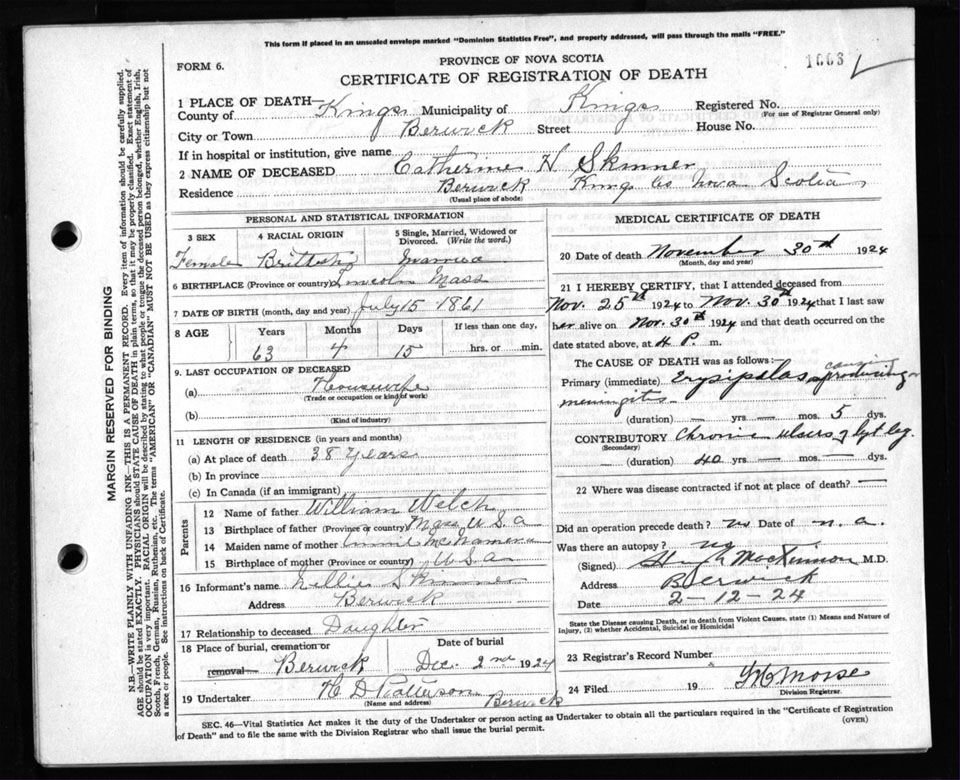 This form if placed in an unsealed envelope marked "Dominion Statistics Free", and properly addressed, will pass through the mails "FREE."
FORM 6.
PROVINCE OF NOVA SCOTIA
CERTIFICATE OF REGISTRATION OF DEATH
1003
1 PLACE OF DEATH—
County of Kings Municipality of Kings Registered No.
(For use of Registrar General only)
City or Town Berwick Street House No.
If in hospital or institution, give name
2 NAME OF DECEASED Catherine H Skinner
Residence Berwick Kings Co Nova Scotia
(Usual place of abode)
PERSONAL AND STATISTICAL INFORMATION
3 SEX
Female
4 RACIAL ORIGIN
Brittish
5 Single, Married, Widowed or Divorced. (Write the word.)
Married
6 BIRTHPLACE (Province or country) Lincoln Mass
7 DATE OF BIRTH (month, day and year) July 15 1861
8 AGE
Years Months Days If less than one day,
63 4 15 hrs. or min.
9. LAST OCCUPATION OF DECEASED
(a) Housewife
(Trade or occupation or kind of work)
(b)
(Kind of industry)
11 LENGTH OF RESIDENCE (in years and months)
(a) At place of death 38 years
(b) In province
(c) In Canada (if an immigrant)
Parents
12 Name of father William Welch
13 Birthplace of father (Province or country) Mass U S a
14 Maiden name of mother Annie McNamera
15 Birthplace of mother (Province or country) U S a
16 Informant's name Nellie Skinner
Address Berwick
17 Relationship to deceased Daughter
18 Place of burial, cremation or removal Berwick
Date of burial
Dec. 2nd 1924
19 Undertaker H D Patterson Berwick
(Name and address)
MEDICAL CERTIFICATE OF DEATH
20 Date of death November 30th 1924
(Month, day and year)
21 I HEREBY CERTIFY, that I attended deceased from
Nov. 25th 1924 to Nov. 30th 1924 that I last saw
her alive on Nov. 30th 1924 and that death occurred on the
date stated above, at 4 P. m.
The CAUSE OF DEATH was as follows:—
Primary (immediate) Erysipelas causing producing
meningites
(duration) — yrs — mos. 5 dys.
CONTRIBUTORY Chronic ulsers of lft leg.
(Secondary)
(duration) 40 yrs — mos. — dys.
22 Where was disease contracted if not at place of death? —
Did an operation precede death? no Date of n. a.
Was there an autopsy? no
(Signed) Hugh MacKinnon M.D.
Address Berwick
Date 2-12-24
State the Disease causing Death, or in death from Violent Causes, state (1) Means and Nature of Injury, (2) whether Accidental, Suicidal or Homicidal
23 Registrar's Record Number
24 Filed 19 Morse
Division Registrar.
SEC. 46—Vital Statistics Act makes it the duty of the Undertaker or person acting as Undertaker to obtain all the particulars required in the "Certificate of Registration
of Death" and to file the same with the Division Registrar who shall issue the burial permit.
(OVER)
MARGIN RESERVED FOR BINDING
N.B.—WRITE PLAINLY WITH UNFADING INK—THIS IS A PERMANENT RECORD. Every item of information should be carefully supplied.
AGE should be stated EXACTLY. PHYSICIANS should STATE CAUSE OF DEATH in plain terms, so that it may be properly classified. Exact statement of
OCCUPATION is very important. RACIAL ORIGIN will be described by stating to what people or tongue the deceased person belonged, whether English, Irish,
Scotch, French, German, Russian, Ruthenian, etc. The terms "AMERICAN" OR "CANADIAN" MUST NOT BE USED as they express citizenship but not
a race or people. See instructions on back of Certificate.